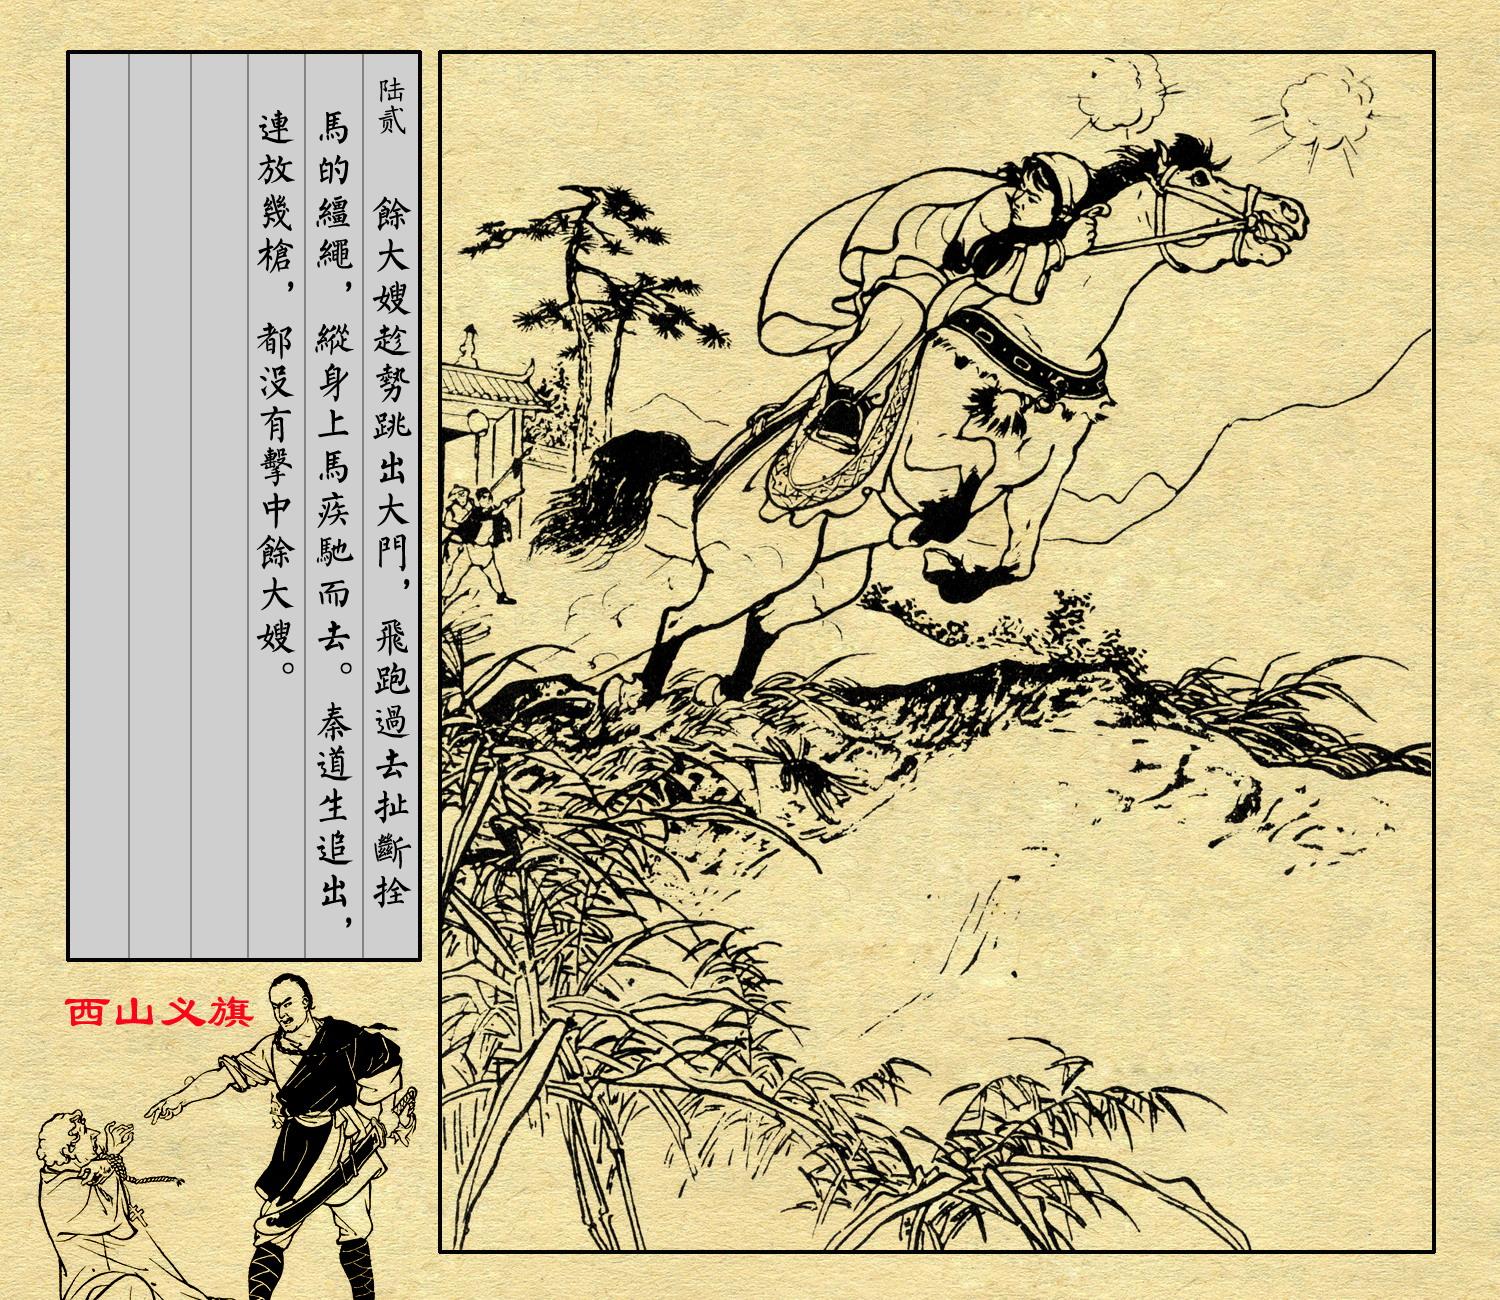 陆贰 餘大嫂趁勢跳出大門，飛跑過去扯斷拴
馬的繮繩，縱身上馬疾馳而去。秦道生追出，
連放幾槍，都没有擊中餘大嫂。
西山义旗